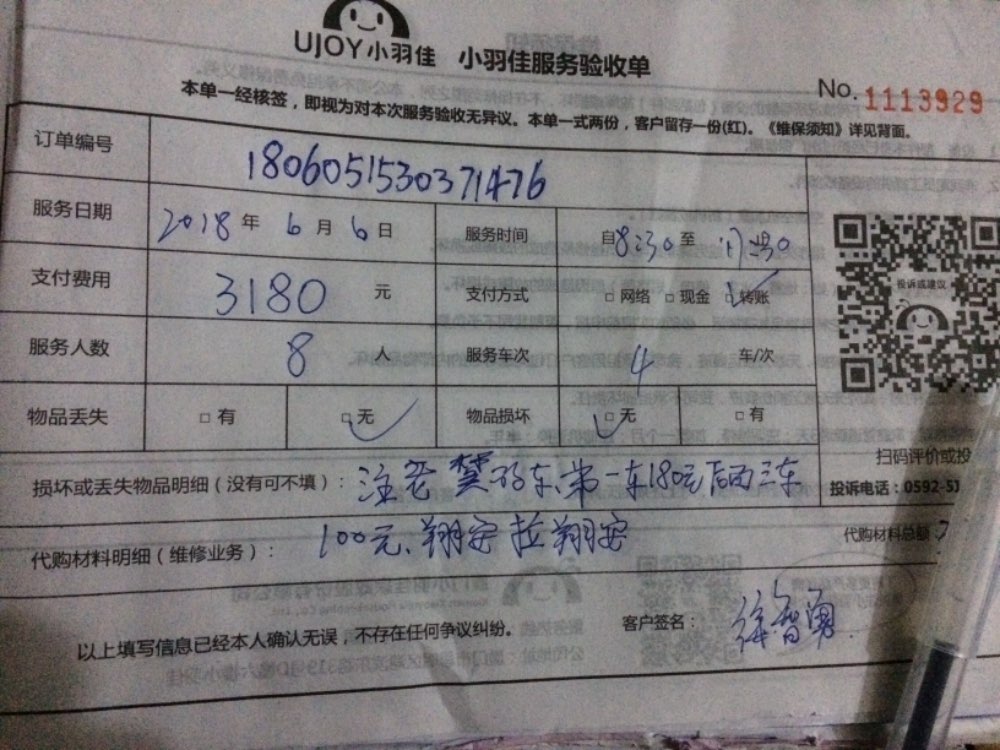 UJOY小羽佳 小羽佳服务验收单
No. 1113929
本单一经核签，即视为对本次服务验收无异议。本单一式两份，客户留存一份(红)。《维保须知》详见背面。
订单编号 1806051530371476
服务日期 2018 年 6 月 6 日 服务时间 自 8:30 至 17:30
支付费用 3180 元 支付方式 □网络 □现金 □转账
投诉或建议
服务人数 8 人 服务车次 4 车/次
物品丢失 □有 □无 物品损坏 □无 □有
扫码评价或投
损坏或丢失物品明细（没有可不填）： 注 的车、第一车180元后面三车
投诉电话：0592-51
代购材料明细（维修业务）： 100元、翔安拉翔安
代购材料总额
以上填写信息已经本人确认无误，不存在任何争议纠纷。 客户签名： 徐智勇